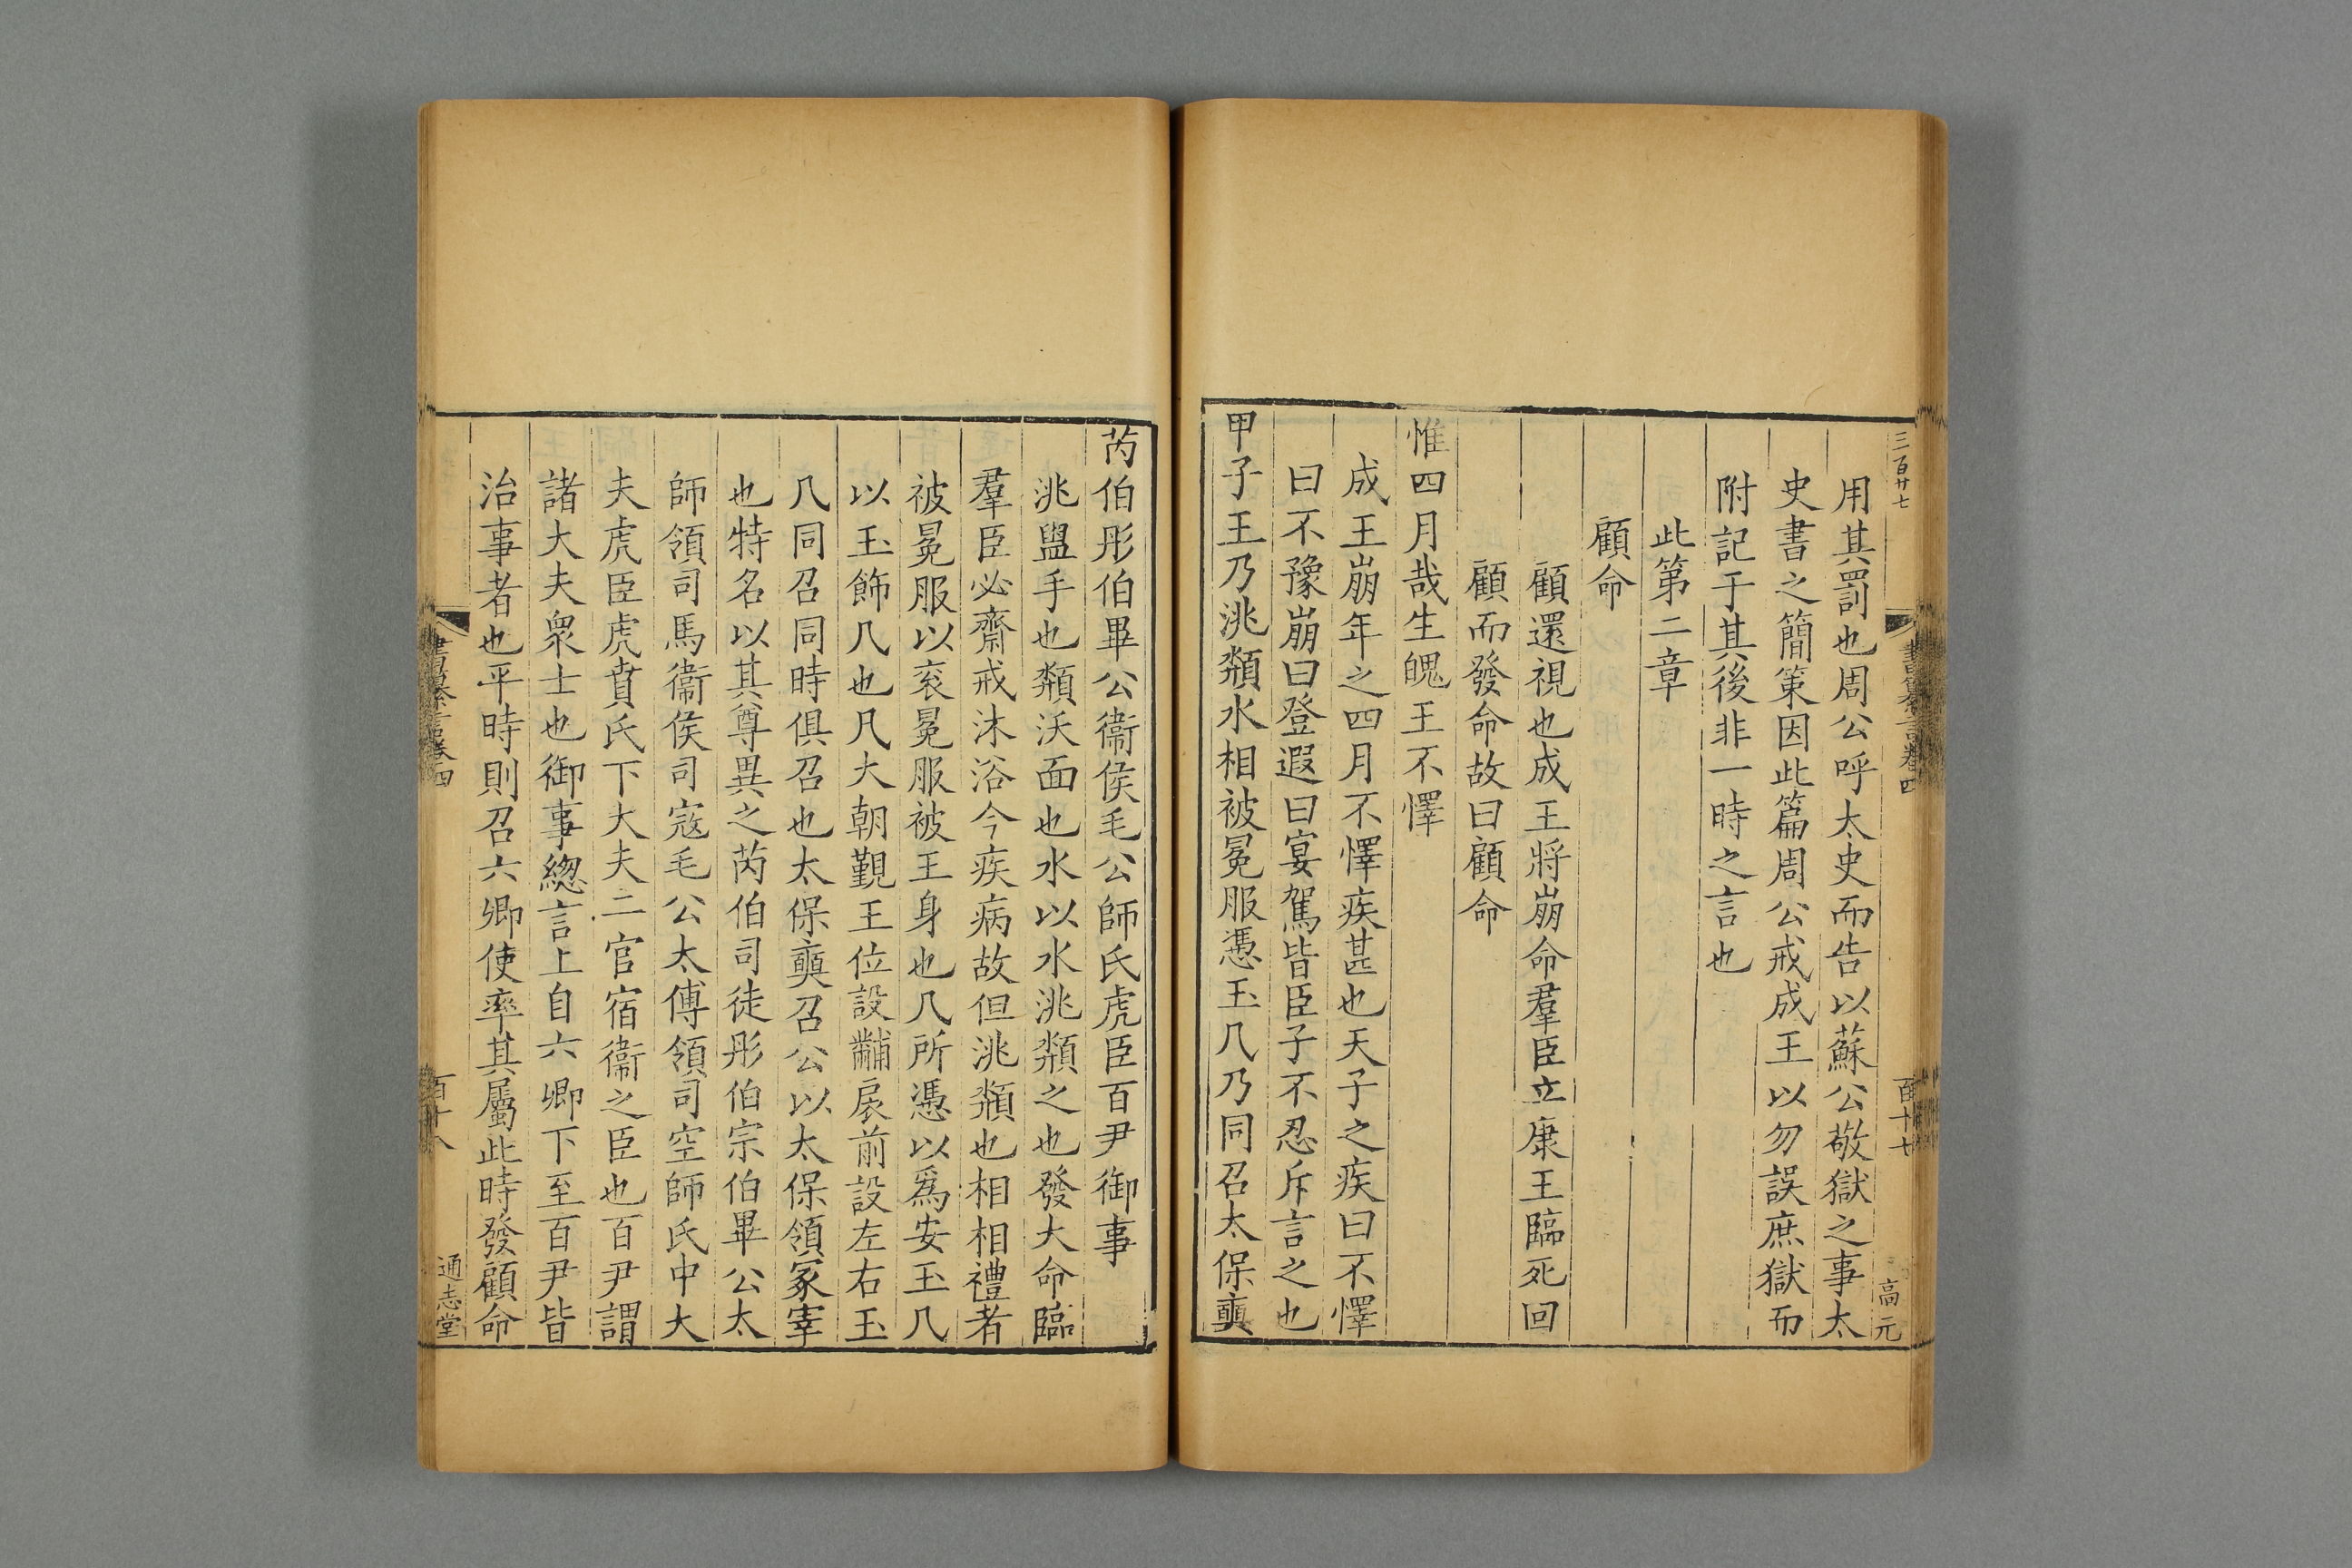 三百廿七
書纂言卷四
百十七
高元
用其罰也周公呼太史而告以蘇公敬獄之事太
史書之簡策因此篇周公戒成王以勿誤庶獄而
附記于其後非一時之言也
此第二章
顧命
顧還視也成王將崩命羣臣立康王臨死回
顧而發命故曰顧命
惟四月哉生魄王不懌
成王崩年之四月不懌疾甚也天子之疾曰不懌
曰不豫崩曰登遐曰宴駕皆臣子不忍斥言之也
甲子王乃洮頮水相被冕服憑玉几乃同召太保奭
芮伯彤伯畢公衞侯毛公師氏虎臣百尹御事
洮盥手也頮沃面也水以水洮頮之也發大命臨
羣臣必齋戒沐浴今疾病故但洮頮也相相禮者
被冕服以衮冕服被王身也几所憑以爲安玉几
以玉飾几也凡大朝覲王位設黼扆前設左右玉
几同召同時俱召也太保奭召公以太保領冢宰
也特名以其尊異之芮伯司徒彤伯宗伯畢公太
師領司馬衞侯司寇毛公太傅領司空師氏中大
夫虎臣虎賁氏下大夫二官宿衞之臣也百尹謂
諸大夫衆士也御事緫言上自六卿下至百尹皆
治事者也平時則召六卿使率其屬此時發顧命
書纂言卷四
百十八
通志堂